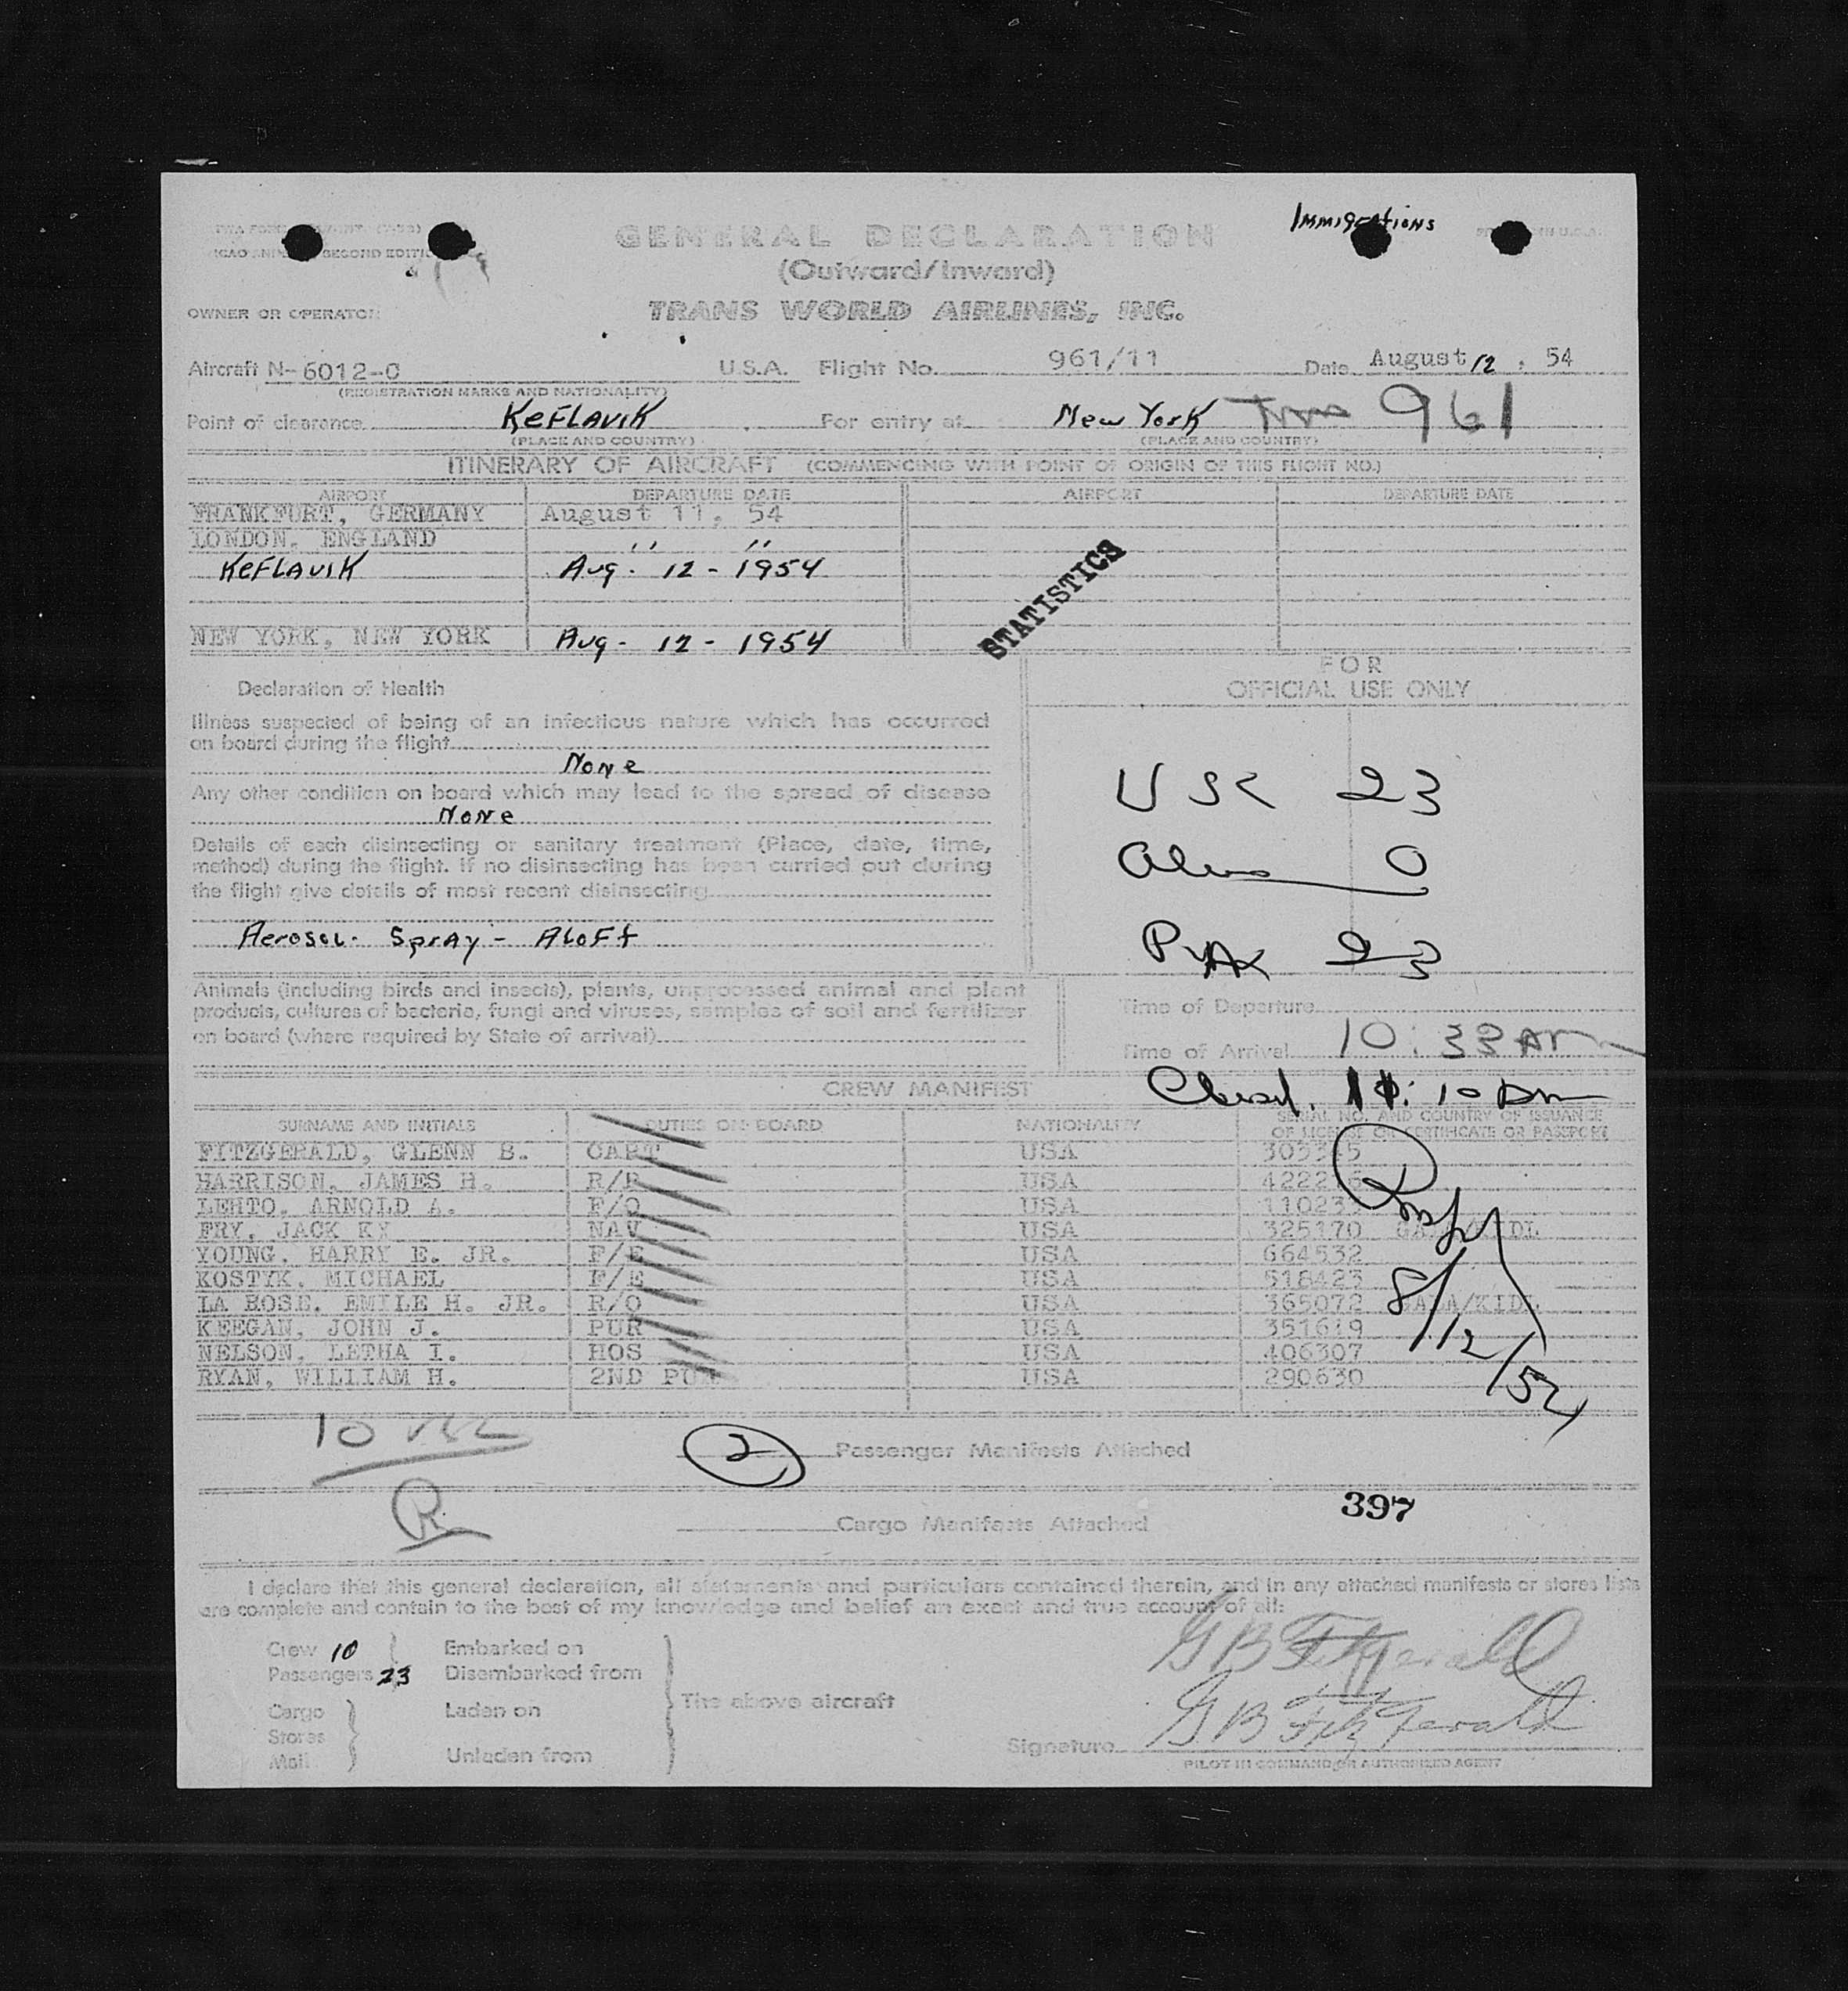 Immigrations
GENERAL DECLARATION
(Outward/Inward)
SECOND EDITION
OWNER OR OPERATOR
TRANS WORLD AIRLINES, INC.
Aircraft N-6012-C U.S.A. Flight No. 961/11 Date August 12, 54
(REGISTRATION MARKS AND NATIONALITY)
Point of clearance KEFLAVIK For entry at New York 961
(PLACE AND COUNTRY) (PLACE AND COUNTRY)
ITINERARY OF AIRCRAFT (COMMENCING WITH POINT OF ORIGIN OF THIS FLIGHT NO.)
AIRPORT DEPARTURE DATE AIRPORT DEPARTURE DATE
FRANKFURT, GERMANY August 11, 54
LONDON, ENGLAND " "
KEFLAVIK Aug. 12-1954
STATISTICS
NEW YORK, NEW YORK Aug- 12-1954
FOR
OFFICIAL USE ONLY
Declaration of Health
Illness suspected of being of an infectious nature which has occurred
on board during the flight
None
Any other condition on board which may lead to the spread of disease
None
Details of each disinsecting or sanitary treatment (Place, date, time,
method) during the flight. If no disinsecting has been carried out during
the flight give details of most recent disinsecting
Aerosol- Spray- Aloft
USC 23
0
Pax 23
Animals (including birds and insects), plants, unprocessed animal and plant
products, cultures of bacteria, fungi and viruses, samples of soil and fertilizer
on board (where required by State of arrival)
Time of Departure
Time of Arrival 10:33 AM
CREW MANIFEST
SURNAME AND INITIALS DUTIES ON BOARD NATIONALITY SERIAL NO. AND COUNTRY OF ISSUANCE
OF LICENSE OR CERTIFICATE OR PASSPORT
FITZGERALD, GLENN B. CAPT USA
HARRISON, JAMES H. USA
LEHTO, ARNOLD A. F/O USA
FRY, JACK NAV USA 325170
YOUNG, HARRY E. JR. F/E USA 664532
KOSTYK, MICHAEL F/E USA 518423
LA BOSE, EMILE H. JR. R/O USA 365072
KEEGAN, JOHN J. PUR USA 351619
NELSON, LETHA I. HOS USA 406307
RYAN, WILLIAM H. 2ND PUR USA 290630
8/12/54
10 USC
2 Passenger Manifests Attached
R
397
Cargo Manifests Attached
I declare that this general declaration, all statements and particulars contained therein, and in any attached manifests or stores lists
are complete and contain to the best of my knowledge and belief an exact and true account of all:
Crew 10 Embarked on
Passengers 23 Disembarked from
Cargo Laden on
Stores
Mail Unladen from
The above aircraft
G B Fitzgerald
Signature G B Fitzgerald
PILOT IN COMMAND OR AUTHORIZED AGENT